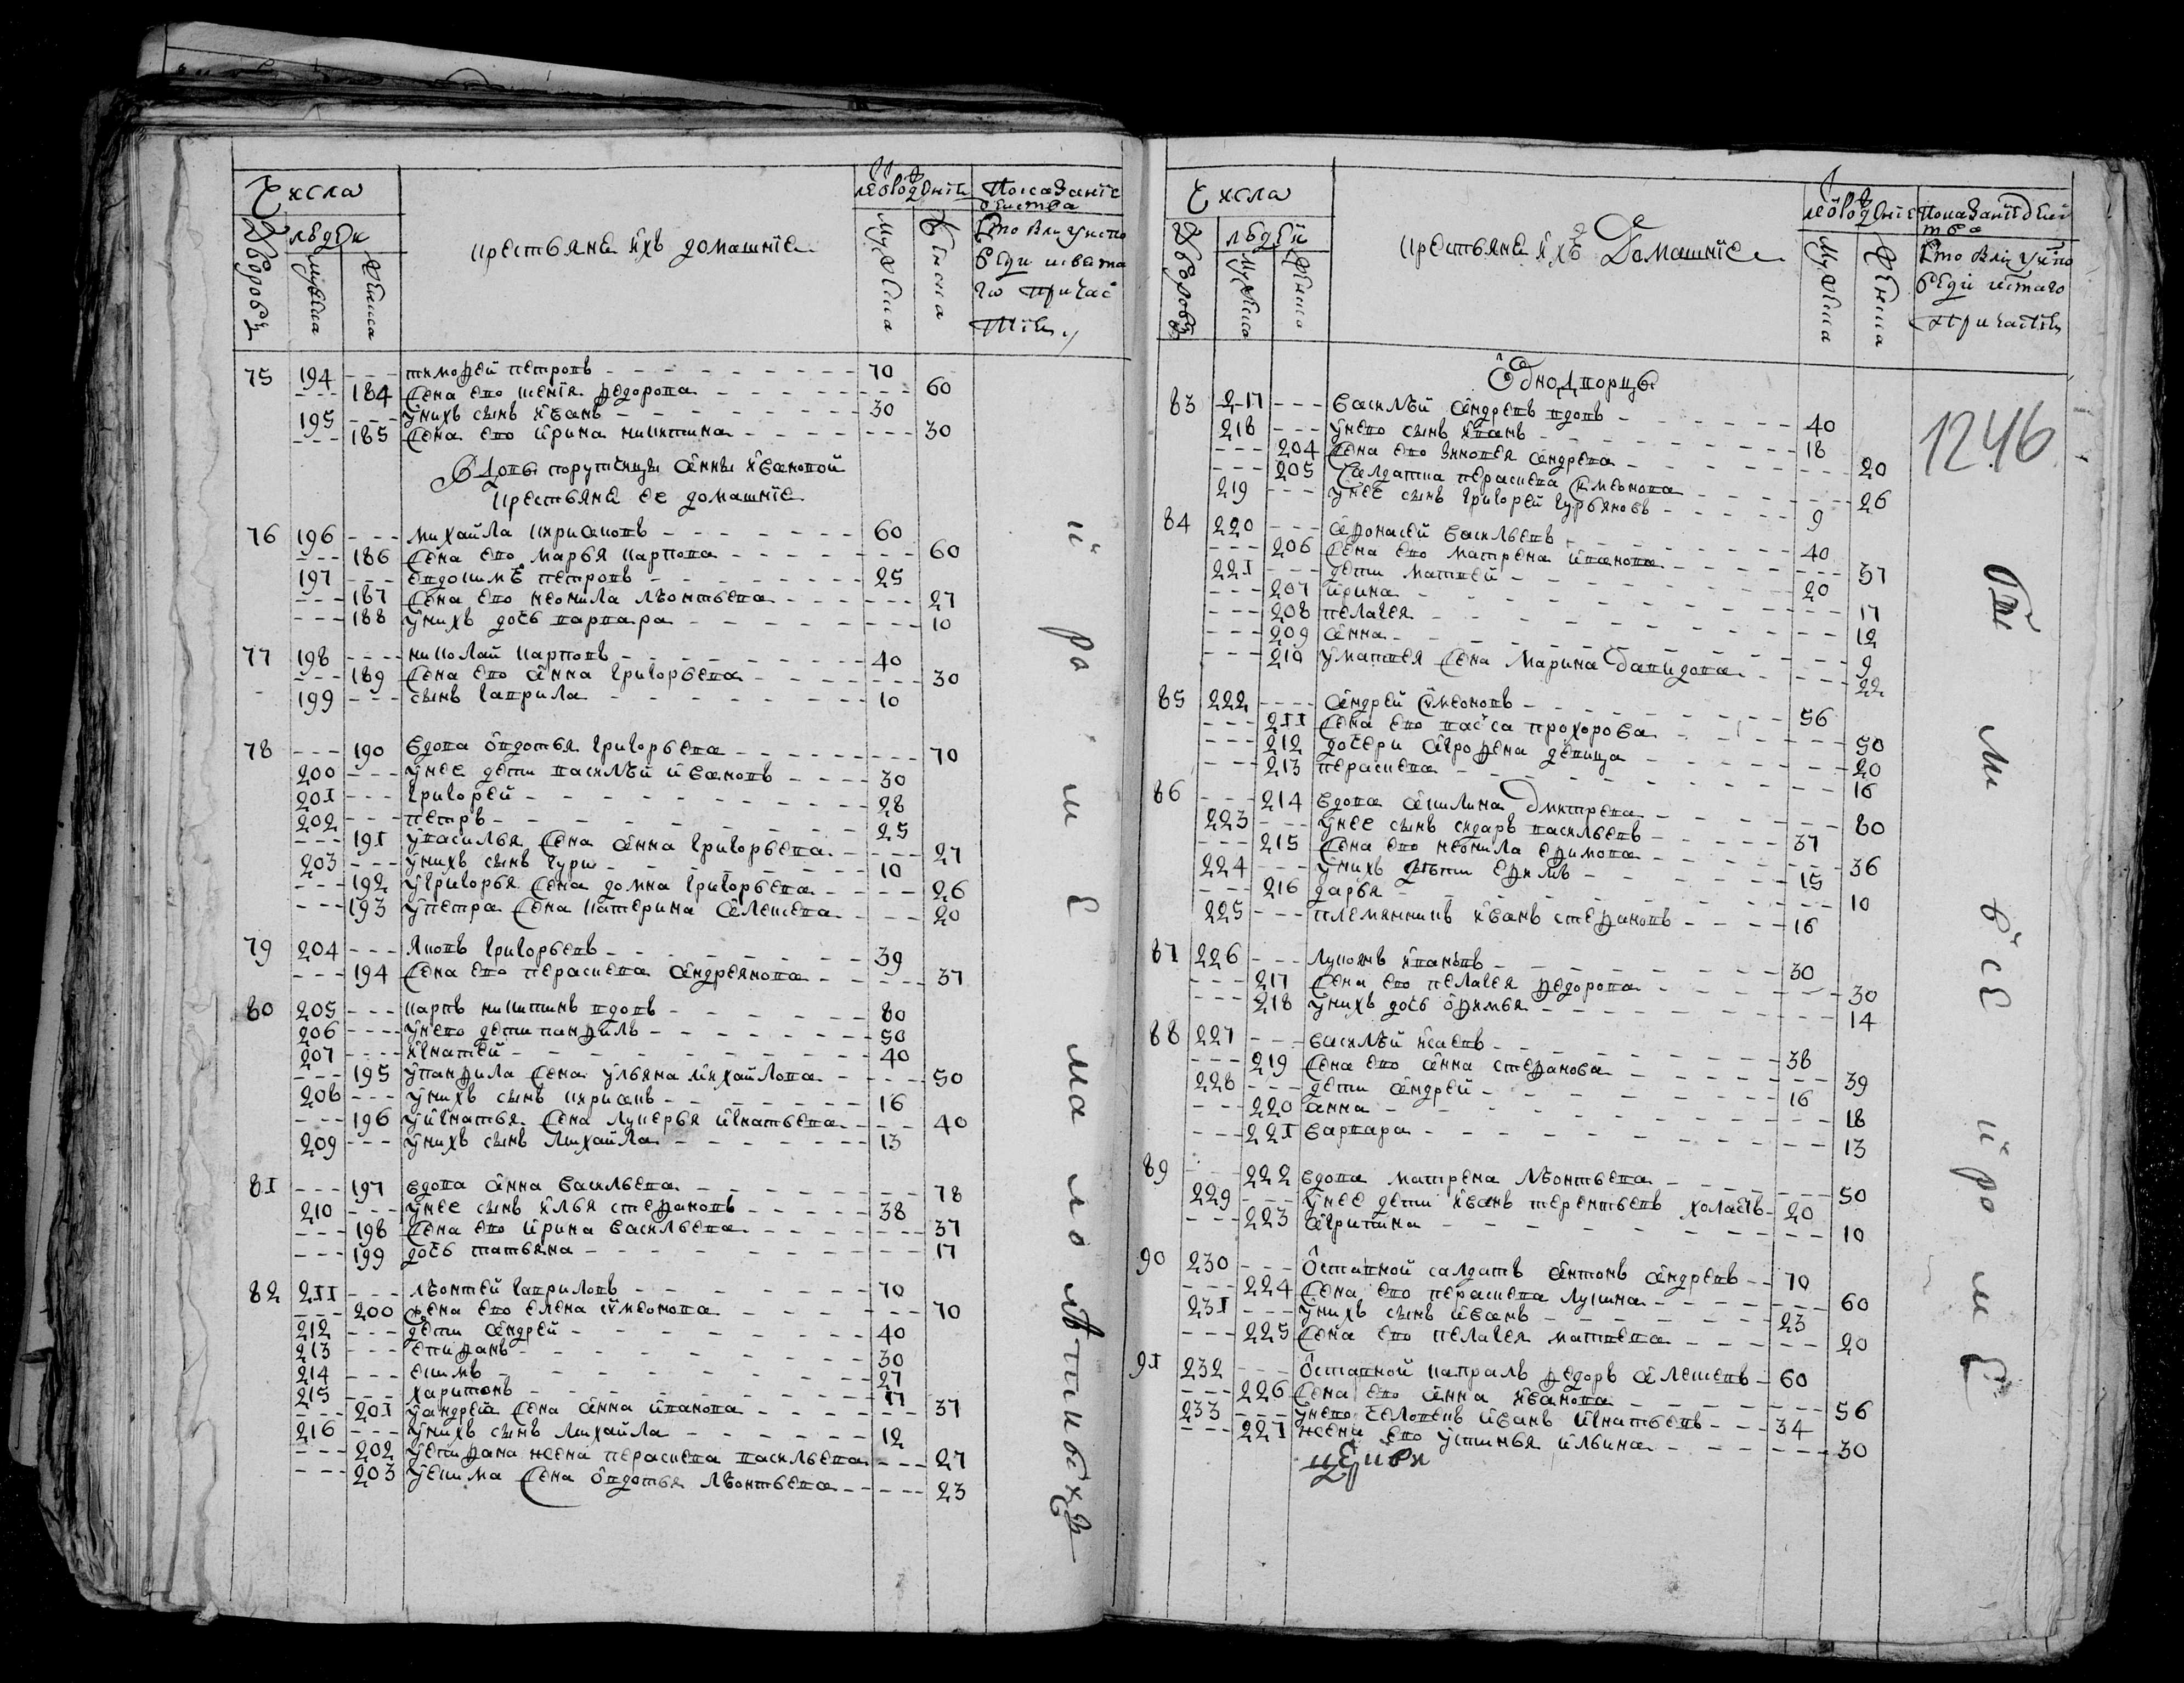 Числа
людей
Дворовъ
мужеска
женска
крестьяне ихъ домашние
лета от рождения
мужеска
женска
Показание
действа
Кто былъ у испо
веди и свята
го Причас
тия
75 194 --- тимофей петровъ --- 70
--- 184 жена ево ксения федорова --- 60
195 --- у нихъ сынъ иванъ --- 30
--- 185 жена ево ирина никитина --- 30
Вдовы порутчицы анны ивановой
Крестьяне ее домашние
76 196 --- михайла кирсановъ --- 60
--- 186 жена ево марья карпова --- 60
197 --- евдокимъ петровъ --- 25
--- 187 жена ево неонила леонтьева --- 27
--- 188 у нихъ дочь варвара --- 10
77 198 --- николай карповъ --- 40
--- 189 жена ево анна григорьева --- 30
199 --- сынъ гаврила --- 10
78 --- 190 вдова овдотья григорьева --- 70
200 --- у нее дети василей ивановъ --- 30
201 --- григорей --- 28
202 --- петръ --- 25
--- 191 у василья жена анна григорьева --- 27
203 --- у нихъ сынъ гури --- 10
--- 192 у григорья жена домна григорьева --- 26
--- 193 у петра жена катерина алексеева --- 20
79 204 --- яковъ григорьевъ --- 39
--- 194 жена ево пераскева андреянова --- 37
80 205 --- карпъ никитинъ вдовъ --- 80
206 --- у нево дети панфилъ --- 50
207 --- игнатей --- 40
--- 195 у панфила жена ульяна михайлова --- 50
208 --- у нихъ сынъ кирсанъ --- 16
--- 196 у игнатья жена лукерья игнатьева --- 40
209 --- у нихъ сынъ михайла --- 13
81 --- 197 вдова анна васильева --- 78
210 --- у нее сынъ илья стефановъ --- 38
--- 198 жена ево ирина васильева --- 37
--- 199 дочь татьяна --- 17
82 211 --- леонтей гавриловъ --- 70
--- 200 жена ево елена симеонова --- 70
212 --- дети андрей --- 40
213 --- епифанъ --- 30
214 --- екимъ --- 27
215 --- харитонъ --- 17
--- 201 у андрея жена анна иванова --- 37
216 --- у нихъ сынъ михайла --- 12
--- 202 у епифана жена пераскева васильева --- 27
--- 203 у екима жена овдотья леонтьева --- 23
и роме малолетнихъ
Числа
людей
Дворовъ
мужеска
женска
крестьяне ихъ Домашние
лета от рождения
мужеска
женска
Показание дей
тва
Кто былъ у испо
веди и святаго
Причастия
1246
Однодворцы
83 217 --- василей андреевъ вдовъ --- 40
218 --- у нево сынъ иванъ --- 18
--- 204 жена ево зиновея андреева --- 20
--- 205 салдатка пераскева симеонова --- 26
219 --- у нее сынъ григорей гурьяновъ --- 9
84 220 --- афонасей васильевъ --- 40
--- 206 жена ево матрена иванова --- 37
221 --- дети матвей --- 20
--- 207 ирина --- 17
--- 208 пелагея --- 12
--- 209 анна --- 9
--- 210 у матвея жена марина давидова --- 22
85 222 --- андрей симеоновъ --- 56
--- 211 жена ево васса прохорова --- 50
--- 212 дочери агрофена девица --- 20
--- 213 пераскева --- 16
86 --- 214 вдова акилина дмитрева --- 80
223 --- у нее сынъ сидаръ васильевъ --- 37
--- 215 жена ево неонила ефимова --- 36
224 --- у нихъ дети ефимъ --- 15
--- 216 дарья --- 10
225 --- племянникъ иванъ стефановъ --- 16
87 226 --- лукьянъ ивановъ --- 30
--- 217 жена ево пелагея федорова --- 30
--- 218 у нихъ дочь офимья --- 14
88 227 --- василей исаевъ --- 38
--- 219 жена ево анна стефанова --- 39
228 --- дети андрей --- 16
--- 220 анна --- 18
--- 221 варвара --- 13
89 --- 222 вдова матрена леонтьева --- 50
229 --- у нее дети иванъ терентьевъ холастъ - 20
--- 223 агрипина --- 10
90 230 --- отставной салдатъ антонъ андреевъ -- 70
--- 224 жена ево пераскева лукина --- 60
231 --- у нихъ сынъ иванъ --- 23
--- 225 жена ево пелагея матвеева --- 20
91 232 --- отставной капралъ федоръ алексеевъ - 60
--- 226 жена ево анна иванова --- 56
233 --- у нево человекъ иванъ игнатьевъ -- 34
--- 227 жена ево устинья ильина --- 30
церкви
были все кроме